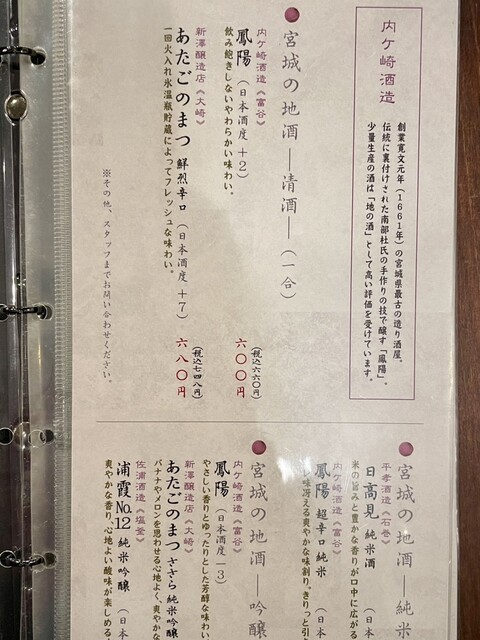 内ケ崎酒造
創業寛文元年(1661年)の宮城県最古の造り酒屋。
伝統に裏付けされた南部杜氏の手作りの技で醸す「鳳陽」。
少量生産の酒は「地の酒」として高い評価を受けています。
宮城の地酒―清酒―(一合)
内ケ崎酒造《富谷》
鳳陽(日本酒度+2)
飲み飽きしないやわらかい味わい。
(税込六六〇円)
六〇〇円
新澤醸造店《大崎》
あたごのまつ 鮮烈辛口(日本酒度+7)
一回火入れ氷温瓶貯蔵によってフレッシュな味わい。
(税込七四八円)
六八〇円
※その他、スタッフまでお問い合わせください。
宮城の地酒―純米
平孝酒造《石巻》
日高見 純米酒(日本
米の旨みと豊かな香りが口中に広がる
内ケ崎酒造《富谷》
鳳陽 超辛口純米(日本
味冴える爽やかな味割り。きりっと引
宮城の地酒―吟醸
内ケ崎酒造《富谷》
鳳陽(日本酒度―3)
やさしい香りとゆったりとした芳醇な味わい
新澤醸造店《大崎》
あたごのまつ ささら純米吟醸
バナナやメロンを思わせる心地よく、爽やかな
佐浦酒造《塩釜》
浦霞No.12 純米吟醸(日本
爽やかな香り、心地よい酸味が楽しめる、